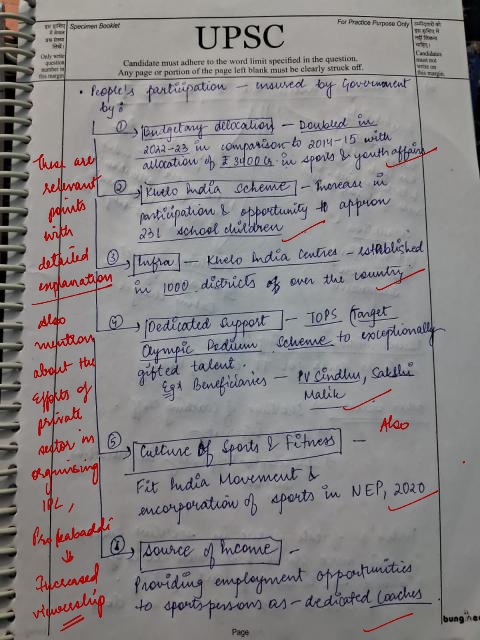 इस हाशिए
में न लिखें।
Only write
question
number in
this margin
Specimen Booklet
UPSC
For Practice Purpose Only
उम्मीदवारों को
इस हाशिए
में नहीं लिखना
चाहिए।
Candidates
must not
write on
this margin.
Candidate must adhere to the word limit specified in the question.
Any page or portion of the page left blank must be clearly struck off.
• People's participation – ensured by Government
by:
① Budgetary allocation – Doubled in
2022-23 in comparison to 2014-15 with
allocation of ₹ 3400 Cr in sports & youth affairs
② Khelo India Scheme – Increase in
participation & opportunity to approx
231 school children
③ Infra – Khelo India Centres – established
in 1000 districts of over the country.
④ Dedicated Support – TOPS (Target
Olympic Podium Scheme to exceptionally
gifted talent.
Eg: Beneficiaries – PV Sindhu, Sakshi
Malik
⑤ Culture of Sports & Fitness –
Fit India Movement &
encorporation of sports in NEP, 2020
⑥ Source of Income –
Providing employment opportunities
to sportspersons as – dedicated coaches
These are
relevant
points
with
detailed
explanation
Also
mention
about the
Efforts of
private
sector in
organising
IPL,
Pro kabaddi
↓
Increased
viewership
Also
Page